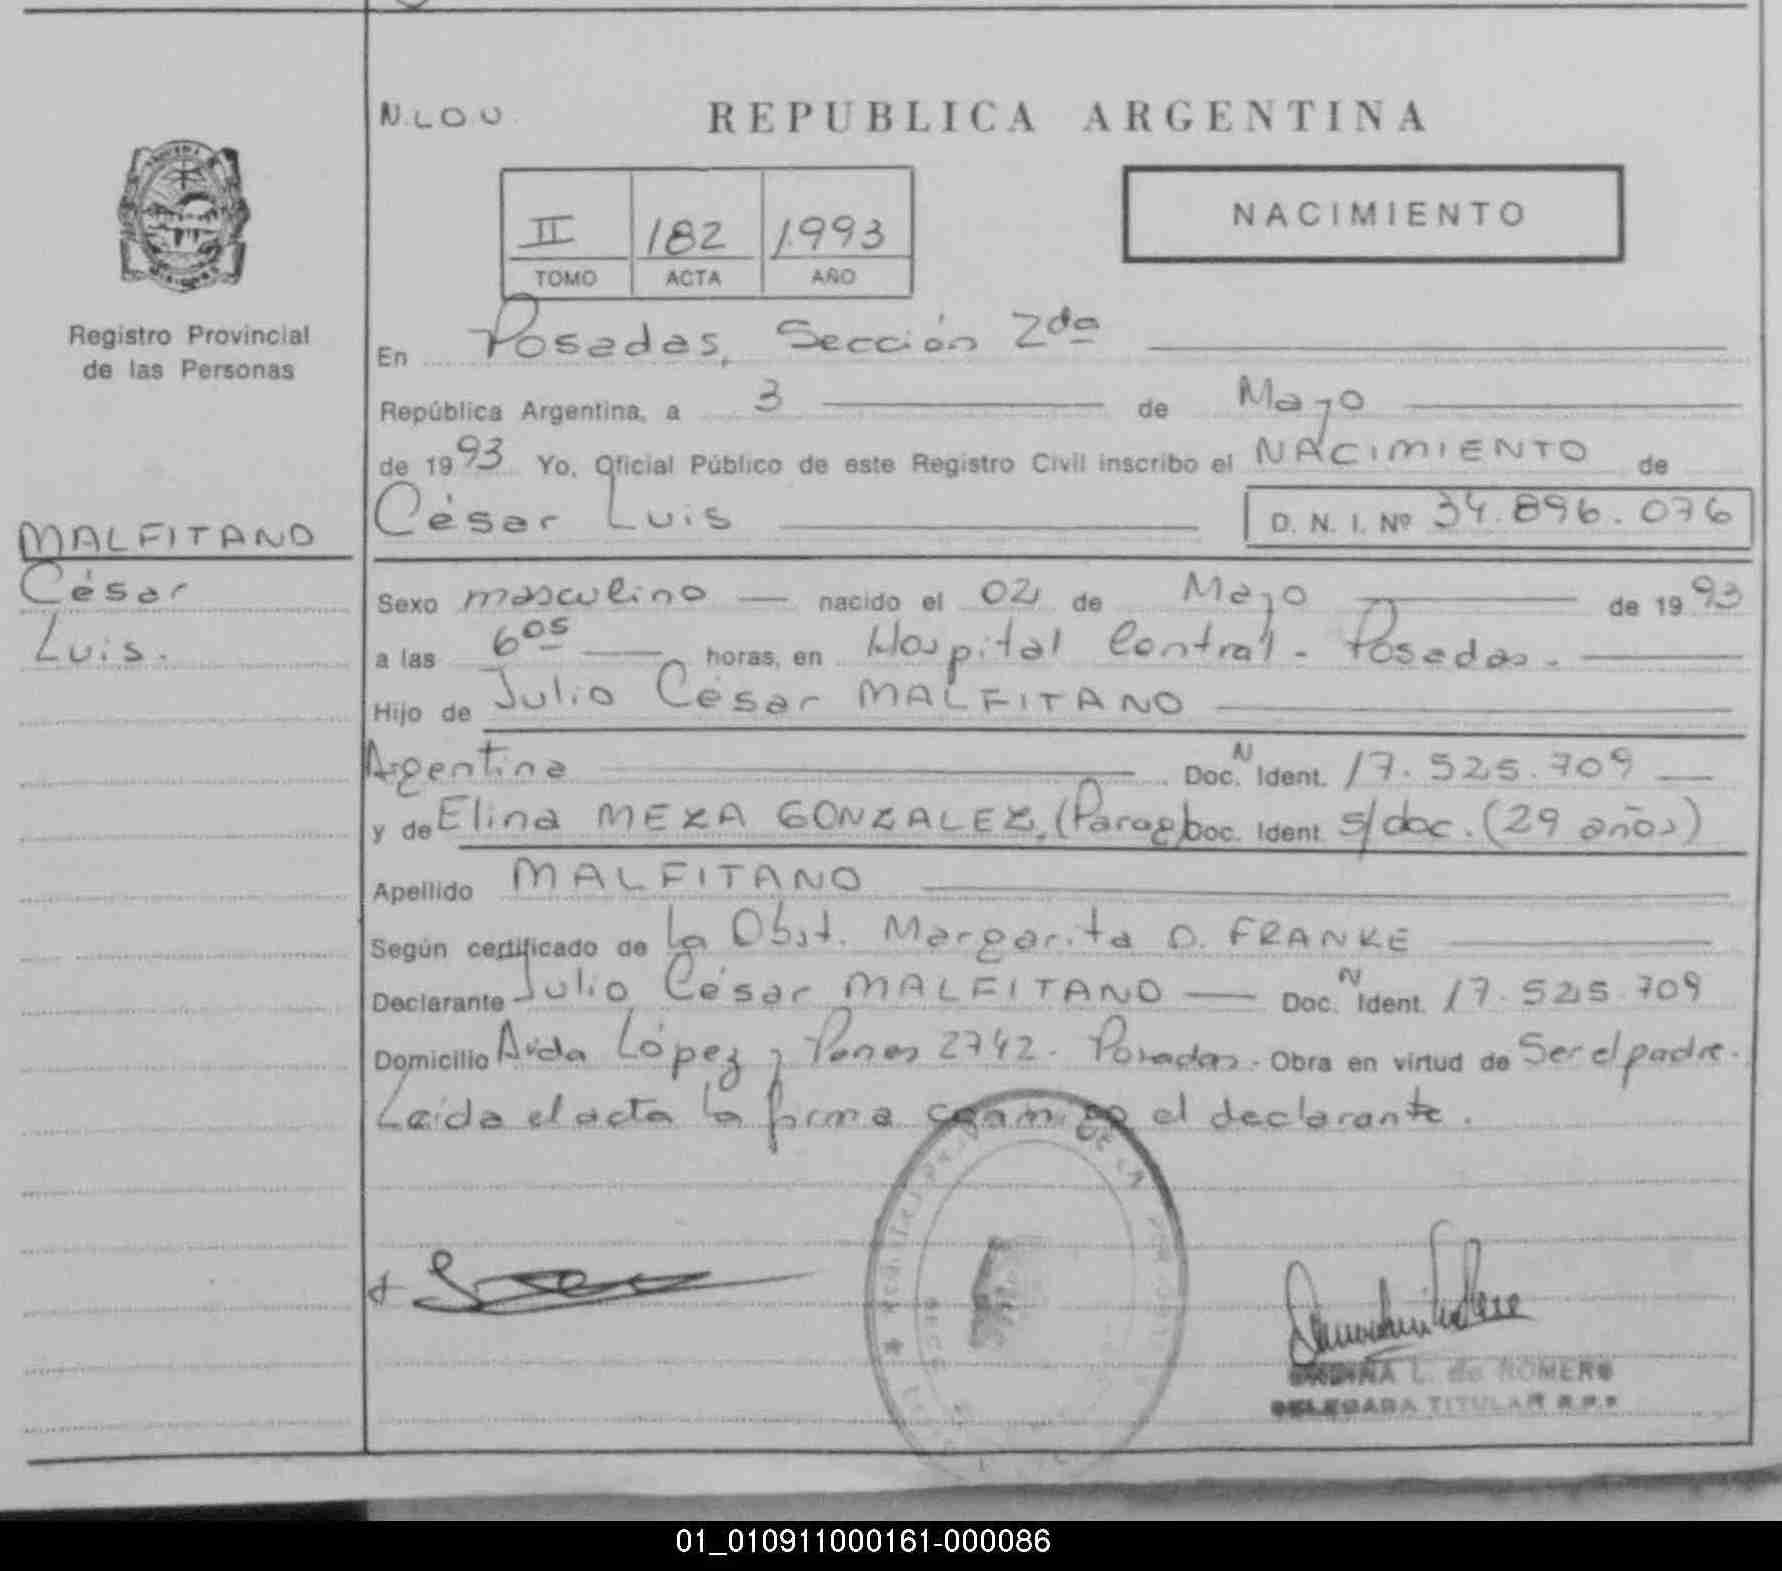 N.LO.U.
REPUBLICA ARGENTINA
II 182 1993
TOMO ACTA AÑO
NACIMIENTO
Registro Provincial
de las Personas
En Posadas, Sección 2da
República Argentina, a 3 de Mayo
de 1993 Yo, Oficial Público de este Registro Civil inscribo el NACIMIENTO de
César Luis D. N. I. Nº 34.896.076
MALFITANO
César
Luis.
Sexo masculino nacido el 02 de Mayo de 1993
a las 6 05 horas, en Hospital Central - Posadas.
Hijo de Julio César MALFITANO
Argentina Doc. N Ident. 17.525.709
y de Elina MEZA GONZALEZ, (Parag) Doc. Ident. s/doc. (29 años)
Apellido MALFITANO
Según certificado de la Obst. Margarita D. FRANKE
Declarante Julio César MALFITANO Doc. N Ident. 17.525.709
Domicilio Avda López y Planes 2742. Posadas. Obra en virtud de Ser el padre.
Leída el acta la firma conmigo el declarante.
L. de ROMERO
DELEGADA TITULAR R.P.P.
01_010911000161-000086